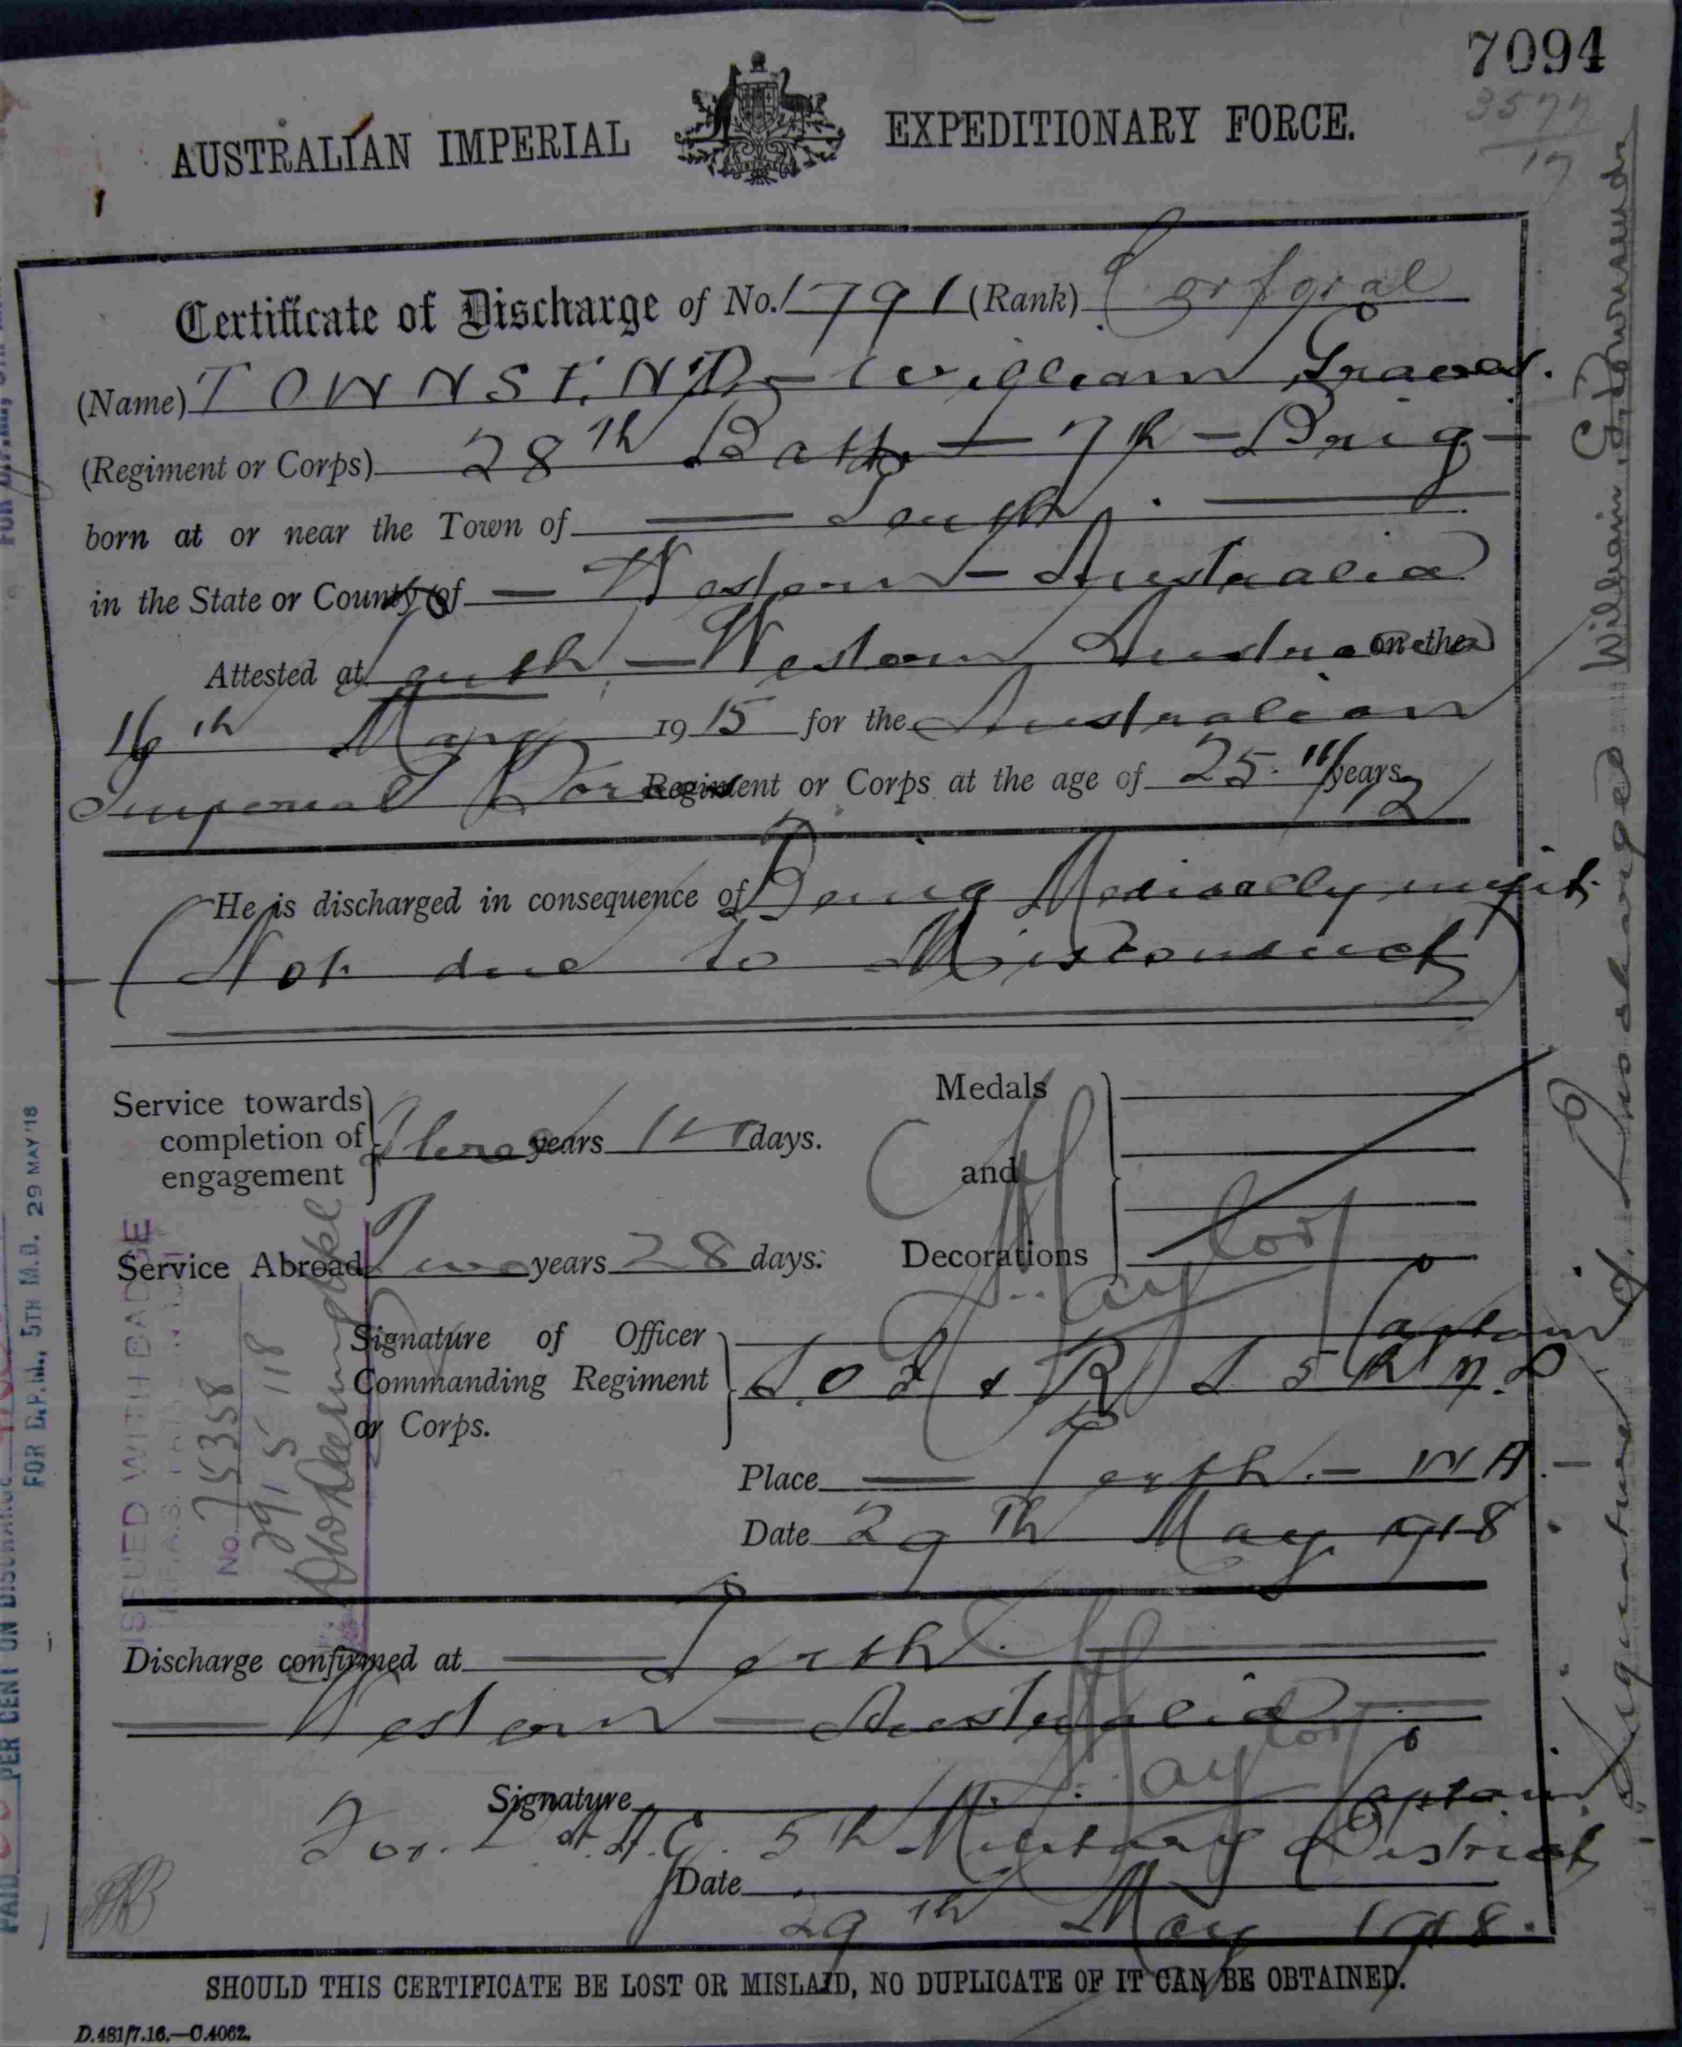 7094
3577
17
AUSTRALIAN IMPERIAL EXPEDITIONARY FORCE.
Certificate of Discharge of No. 1791 (Rank) Corporal
(Name) TOWNSEND - William Graves.
(Regiment or Corps) 28th Battn - 7th - Brig -
born at or near the Town of Perth.
in the State or County of - Western - Australia
Attested at Perth - Western Australia on the
16th May 1915 for the Australian
Imperial Force Regiment or Corps at the age of 25 11/12 years
He is discharged in consequence of Being Medically unfit.
(Not due to Misconduct)
Service towards completion of engagement Three years 14 days.
Medals and Decorations
Service Abroad Two years 28 days.
Signature of Officer Commanding Regiment or Corps.
Taylor Captain
S.O. I & R S 5th M.D
Place Perth. - W A.
Date 29th May 1918
Discharge confirmed at Perth
Western - Australia
Signature Taylor Captain
For 5th Military District
Date 29th May 1918.
SHOULD THIS CERTIFICATE BE LOST OR MISLAID, NO DUPLICATE OF IT CAN BE OBTAINED.
D.481/7.16.-C.4062.
Signature of Discharged William G. Townsend
ISSUED WITH BADGE
No. 75358
29/5/18
FOR D.P.M., 5TH M.D. 29 MAY '18
PAID PER CENT ON DISCHARGE